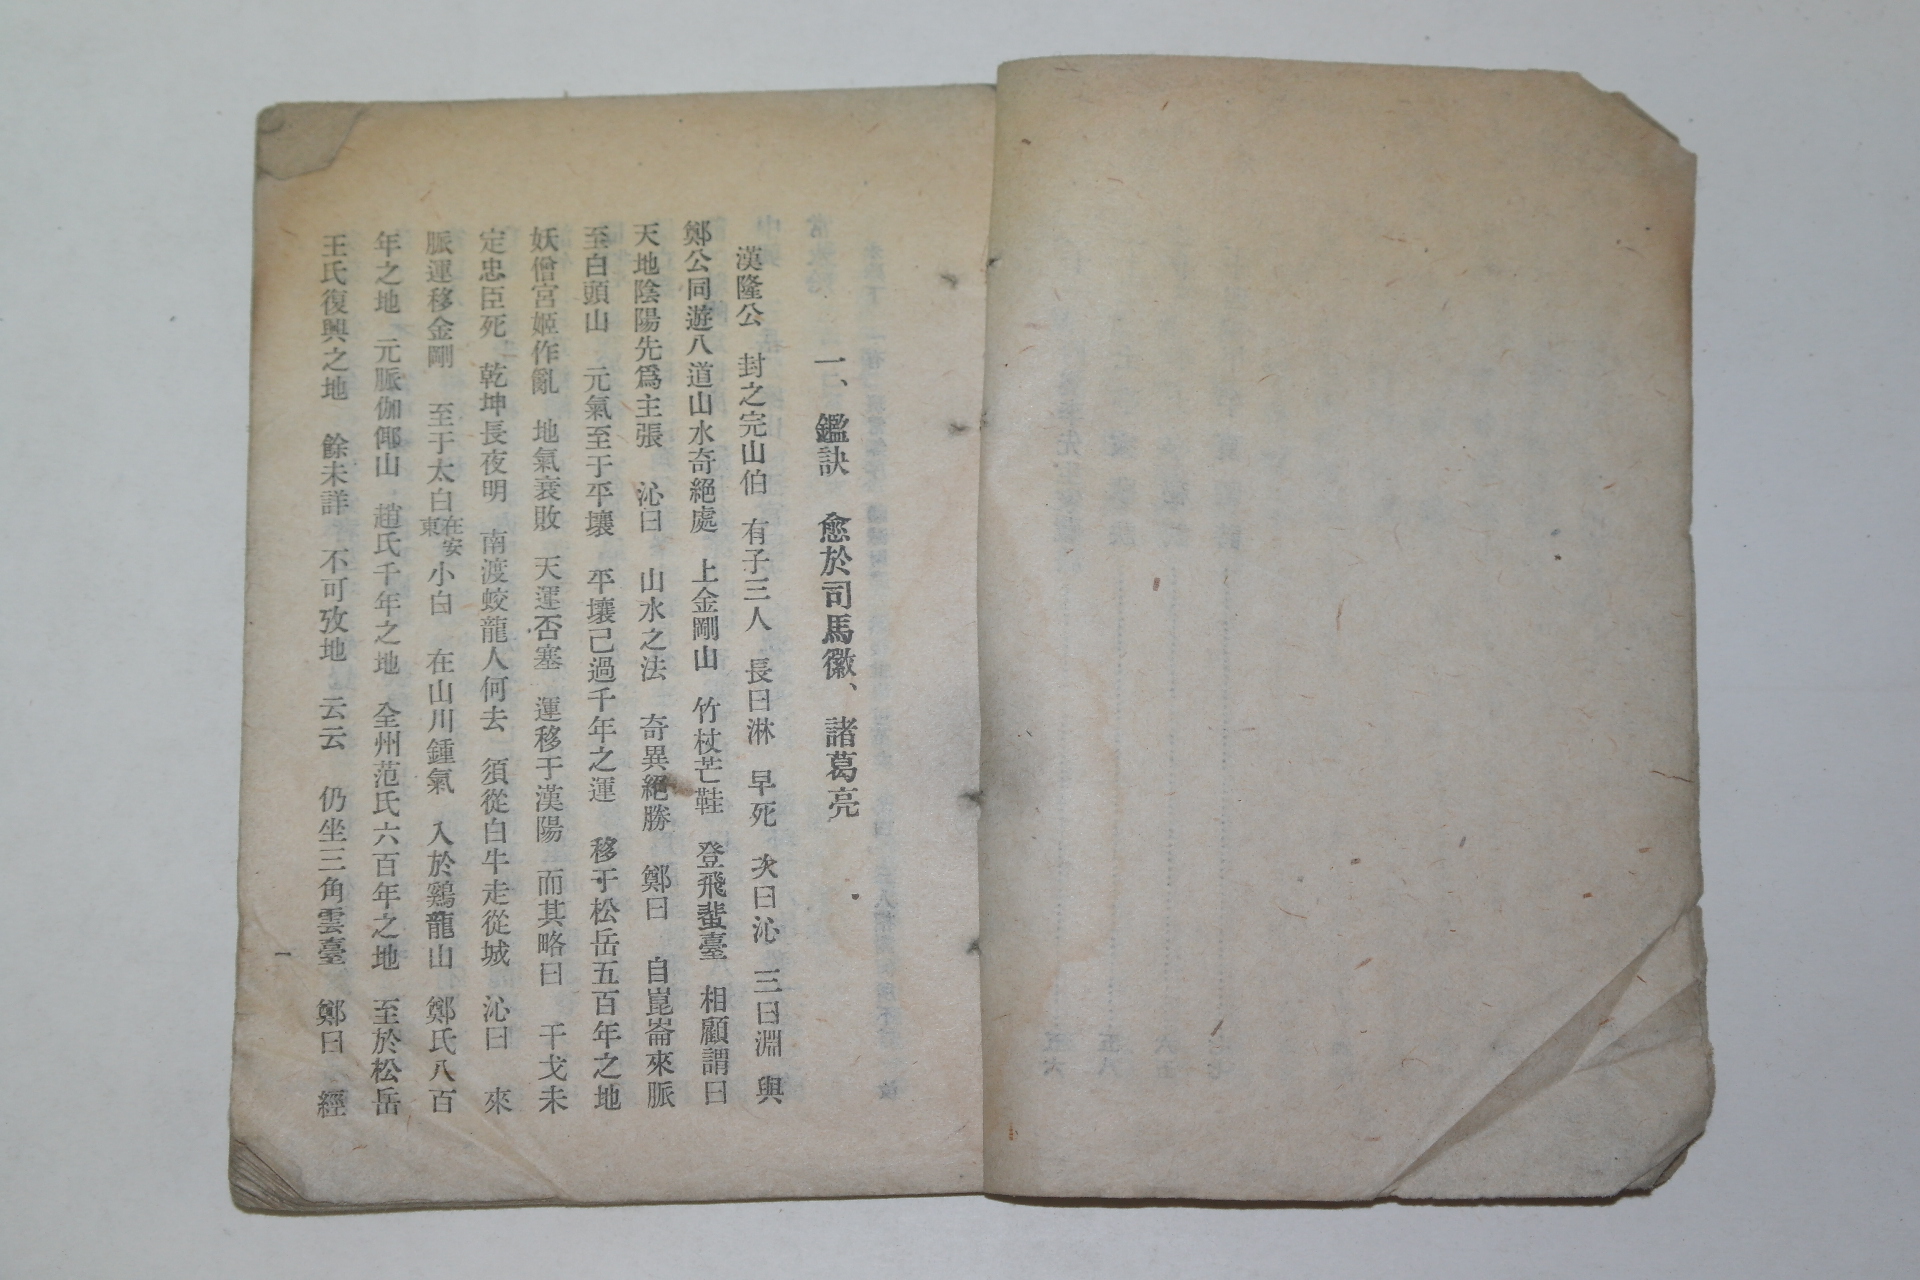 一、鑑訣　愈於司馬徽、諸葛亮
漢隆公　封之完山伯　有子三人　長曰淋　早死　次曰沁　三曰淵　與
鄭公同遊八道山水奇絕處　上金剛山　竹杖芒鞋　登飛蜚臺　相顧謂曰
天地陰陽先爲主張　沁曰　山水之法　奇異絕勝　鄭曰　自崑崙來脈
至白頭山　元氣至于平壤　平壤已過千年之運　移于松岳五百年之地
妖僧宮姬作亂　地氣衰敗　天運否塞　運移于漢陽　而其略曰　干戈未
定忠臣死　乾坤長夜明　南渡蛟龍人何去　須從白牛走從城　沁曰　來
脈運移金剛　至于太白在安東小白　在山川鍾氣　入於鷄龍山　鄭氏八百
年之地　元脈伽倻山　趙氏千年之地　全州范氏六百年之地　至於松岳
王氏復興之地　餘未詳　不可攷地　云云　仍坐三角雲臺　鄭曰　經
一